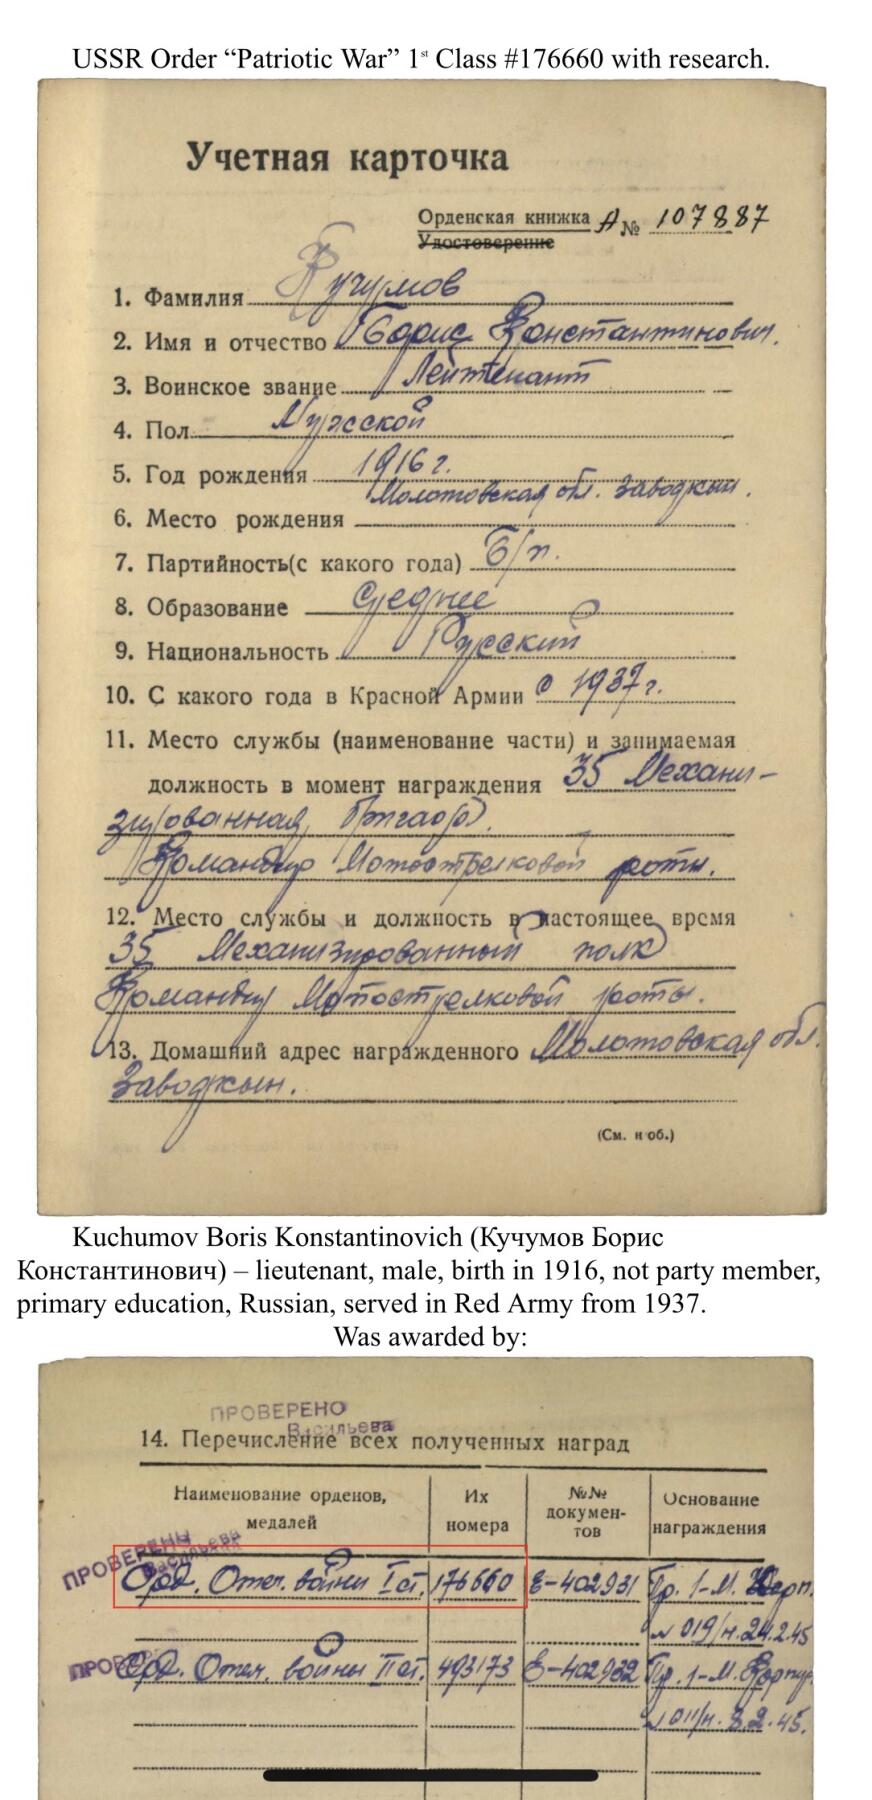 USSR Order “Patriotic War” 1st Class #176660 with research.
Учетная карточка
Орденская книжка А № 107887
Удостоверение
1. Фамилия Кучумов
2. Имя и отчество Борис Константинович.
3. Воинское звание Лейтенант
4. Пол Мужской
5. Год рождения 1916 г.
Молотовская обл. Заводкын.
6. Место рождения
7. Партийность(с какого года) б/п.
8. Образование среднее
9. Национальность Русский
10. С какого года в Красной Армии с 1937 г.
11. Место службы (наименование части) и занимаемая
должность в момент награждения 35 Механи-
зированная бригада.
Командир Мотострелковой роты.
12. Место службы и должность в настоящее время
35 Механизированный полк
Командир Мотострелковой роты.
13. Домашний адрес награжденного Молотовская обл.
Заводкын.
(См. н об.)
Kuchumov Boris Konstantinovich (Кучумов Борис
Константинович) – lieutenant, male, birth in 1916, not party member,
primary education, Russian, served in Red Army from 1937.
Was awarded by:
ПРОВЕРЕНО
Васильева
14. Перечисление всех полученных наград
Наименование орденов, медалей
Их номера
№№ документов
Основание награждения
ПРОВЕРЕНЫ
Васильева
Орд. Отеч. войны I ст. 176660 Е-402931 Пр. 1-М. Корп.
№ 019/н. 24.2.45
ПРОВЕРЕ
Орд. Отеч. войны II ст. 493173 Е-402932 Пр. 1-М. Корпус
№ 011/н. 8.2.45.